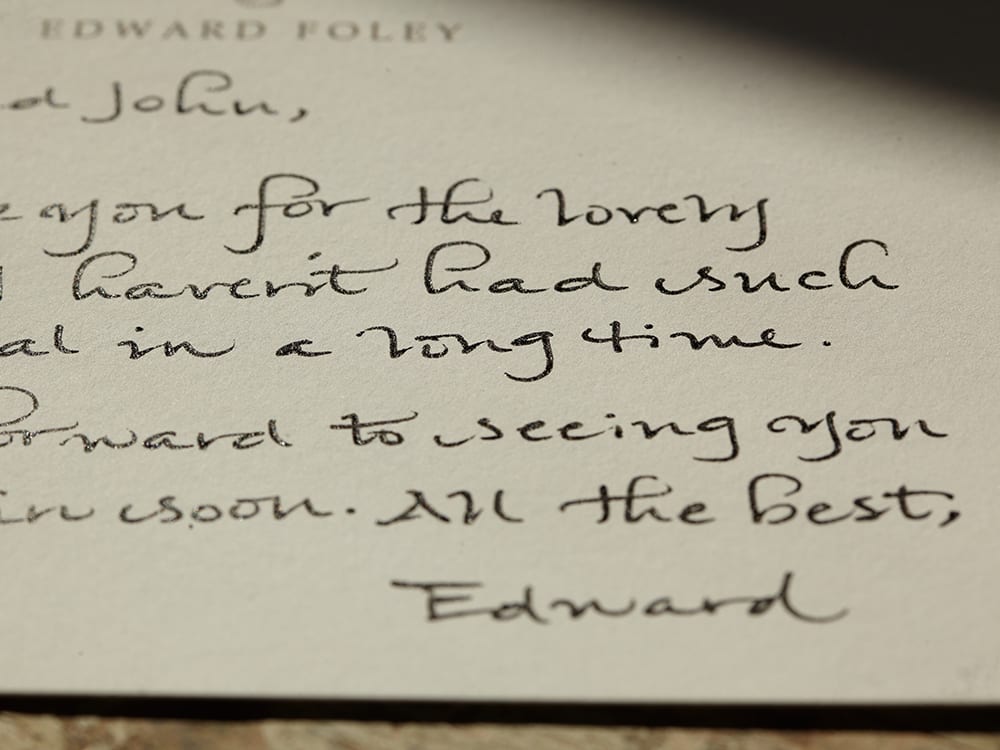 EDWARD FOLEY
d John,
you for the lovely
haven't had such
al in a long time.
orward to seeing you
in soon. All the best,
Edward